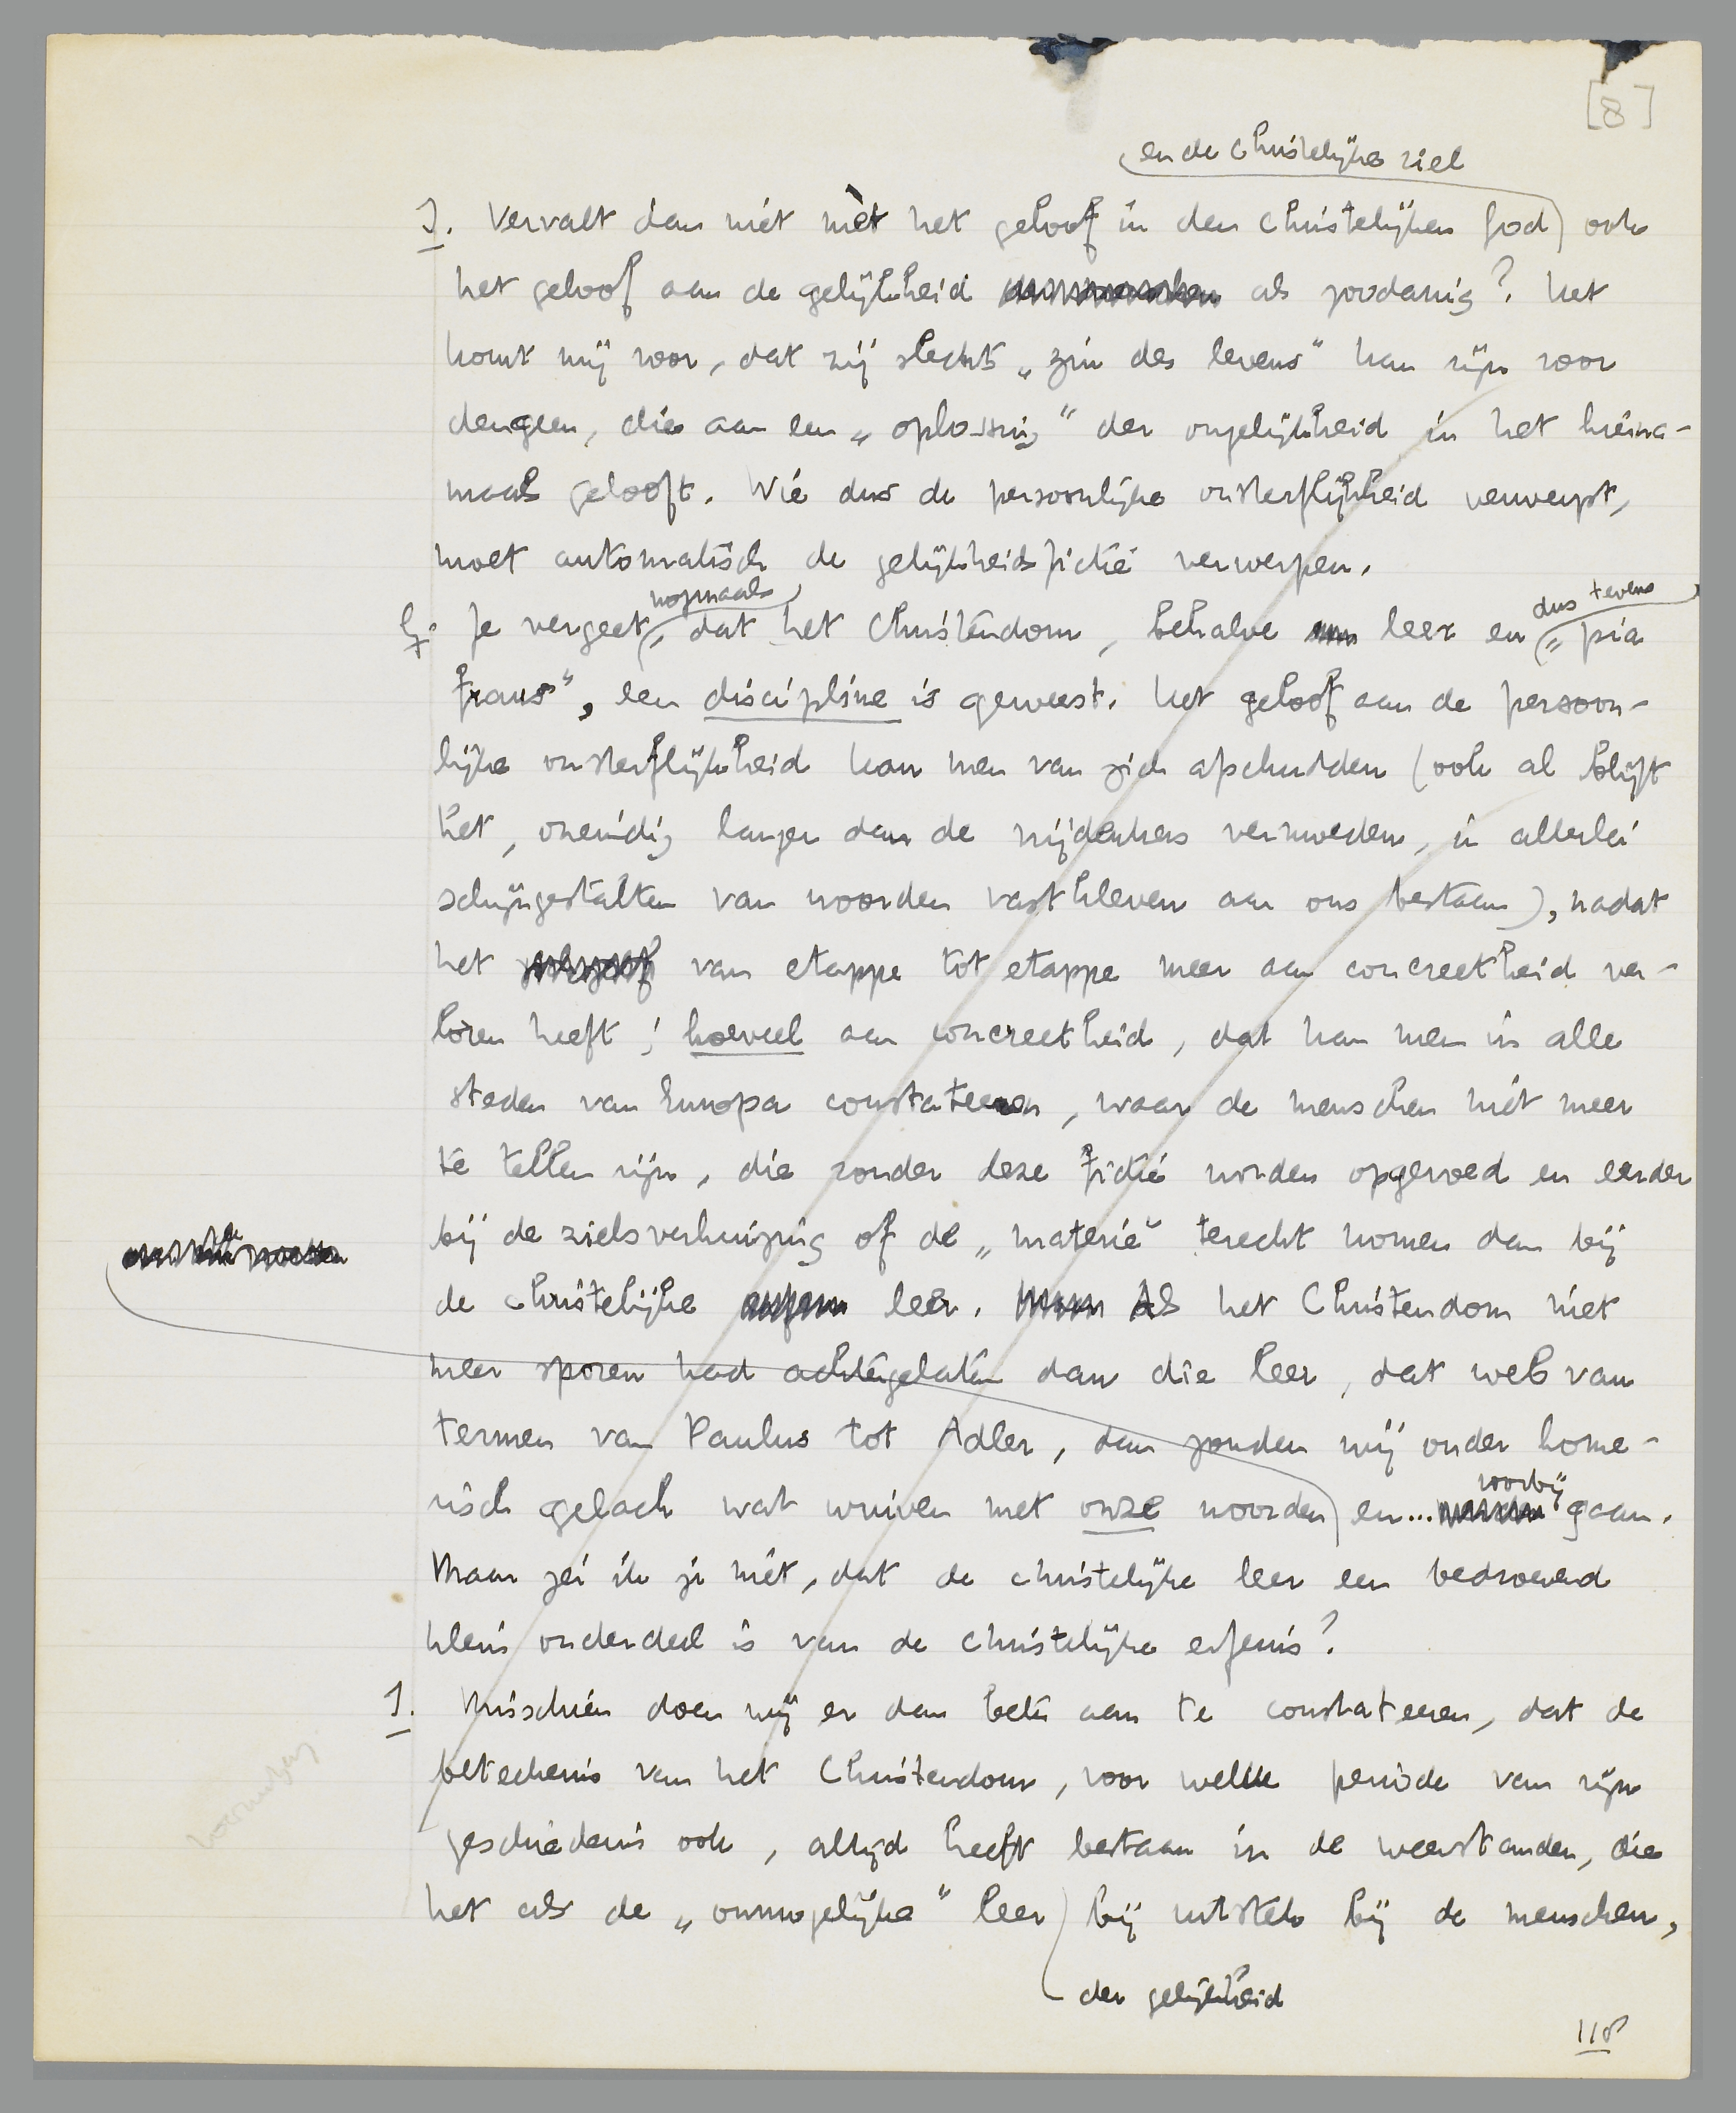 [8]
en de Christelijke ziel
I. Vervalt dan niet mèt het geloof in den Christelijken God ook
het geloof aan de gelijkheid als zoodanig? Het
komt mij voor, dat zij slechts „zin des levens" kan zijn voor
dengeen, die aan een „oplossing" der ongelijkheid in het hierna-
maals gelooft. Wie dus de persoonlijke onsterflijkheid verwerpt,
moet automatisch de gelijkheidsfictie verwerpen.
nogmaals
dus tevens
Je vergeet, dat het Christendom, behalve leer en „pia
fraus", een discipline is geweest. Het geloof aan de persoon-
lijke onsterflijkheid kan men van zich afschudden (ook al blijft
het, oneindig langer dan de vrijdenkers vermoeden, in allerlei
schijngestalten van woorden vastkleven aan ons bestaan), nadat
het van etappe tot etappe meer aan concreetheid ver-
loren heeft; hoeveel aan concreetheid, dat kan men in alle
steden van Europa constateeren, waar de menschen niet meer
te tellen zijn, die zonder deze fictie worden opgevoed en eerder
bij de zielsverhuizing of de „materie" terecht komen dan bij
de Christelijke leer. Als het Christendom niet
meer sporen had achtergelaten dan die leer, dat web van
termen van Paulus tot Adler, dan zouden wij onder home-
risch gelach wat wuiven met onze woorden en... voorbij gaan.
Maar zei ik je niet, dat de christelijke leer een bedroevend
klein onderdeel is van de christelijke erfenis?
I. Misschien doen wij er dan beter aan te constateeren, dat de
beteekenis van het Christendom, voor welke periode van zijn
geschiedenis ook, altijd heeft bestaan in de weerstanden, die
het als de „onmogelijke" leer bij uitstek bij de menschen,
der gelijkheid
118